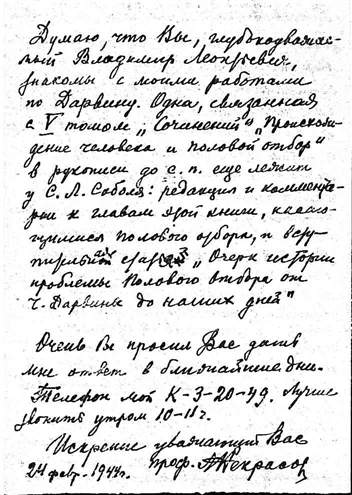 Думаю, что Вы, глубокоуважае-
мый Владимир Леонтьевич,
знакомы с моими работами
по Дарвину. Одна, связанная
с V томом „Сочинений" „Происхож-
дение человека и половой отбор"
в рукописи до с. п. еще лежит
у С. Л. Соболя: редакция и коммента-
рии к главам этой книги, касаю-
щимися полового отбора, и всту-
пительная статья „Очерк истории
проблемы полового отбора от
Ч. Дарвина до наших дней"
Очень бы просил Вас дать
мне ответ в ближайшие дни.
Телефон мой К-3-20-49. Лучше
звонить утром 10-11 ч.
Искренне уважающий Вас
проф. А Некрасов
24 февр. 1944 г.